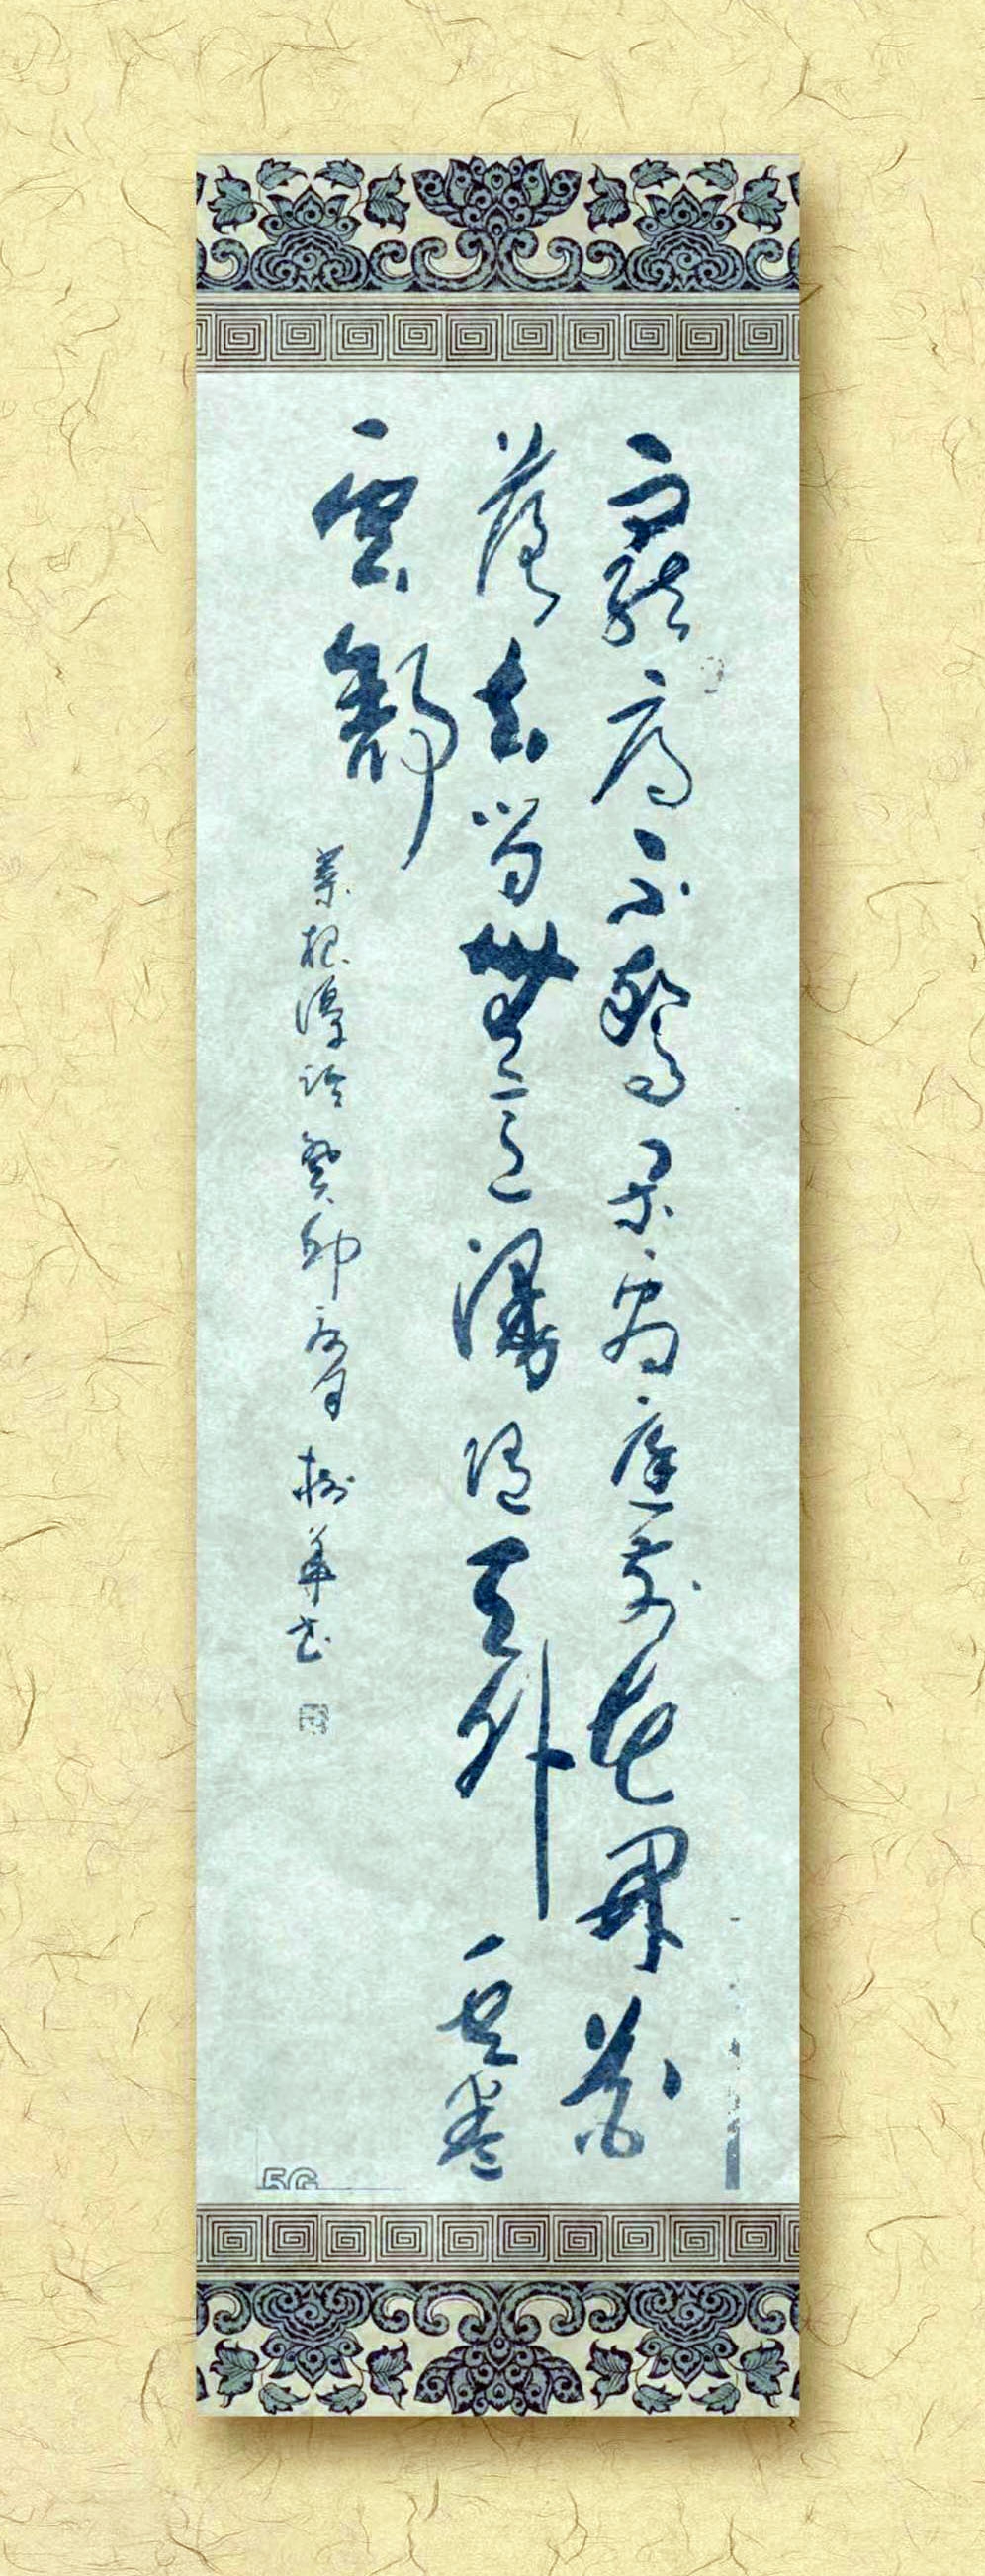 寵辱不驚閒看庭前花開花
落去留無意漫隨天外雲卷
雲舒
菜根潭語癸卯月樹華書
5G